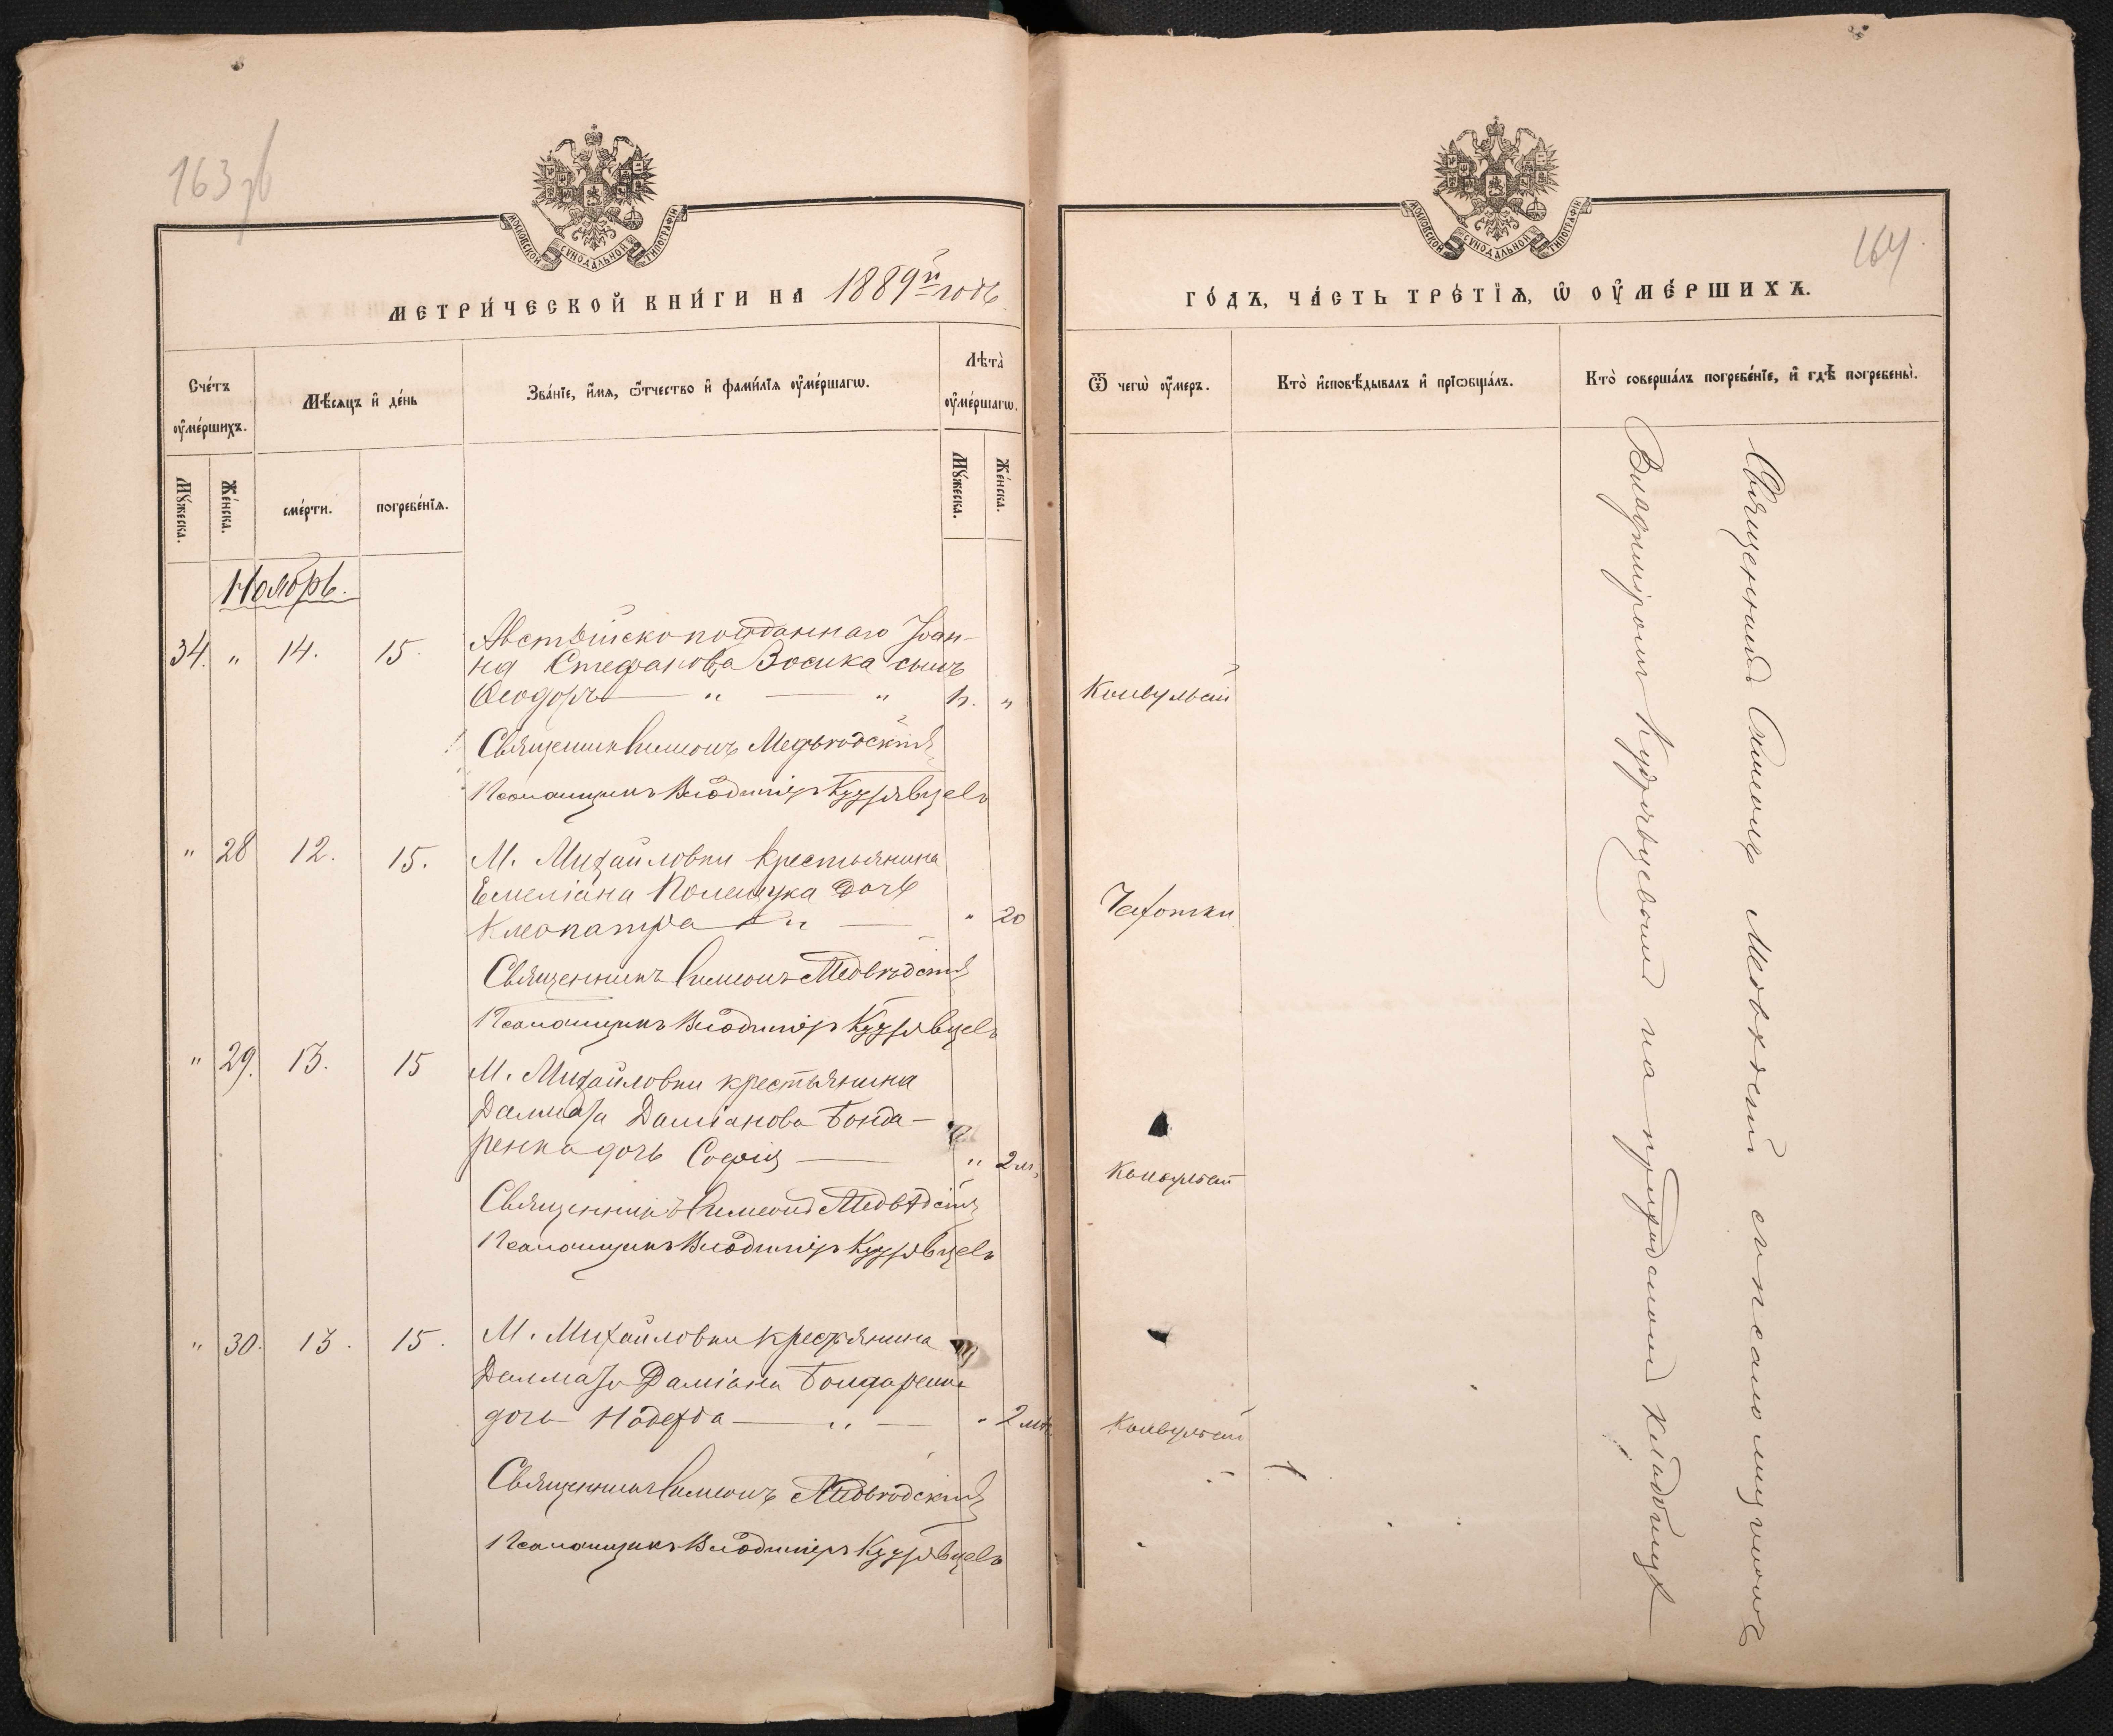 163 зв
МОСКОВСКОЙ СѴНОДАЛЬНОЙ ТИПОГРАФІИ
МЕТРИ́ЧЕСКОЙ КНИ́ГИ НА 1889й годъ
Сче́тъ ᲂу҆ме́ршихъ.
Мѣ́сяцъ и҆ де́нь
Зва́нїе, и҆́мя, ѻ҆́тчество и҆ фами́лїя ᲂу҆ме́ршагѡ.
Лѣта̀ ᲂу҆ме́ршагѡ.
Мꙋ́жеска.
Же́нска.
сме́рти.
погребе́нїѧ.
Мꙋ́жеска.
Же́нска.
Ноябрь.
34. " 14. 15.
Австрійскоподданнаго Іоан-
на Стефанова Восика сынъ
Ѳеодоръ — " — "
Священникъ Симеонъ Медвѣдскій
Псаломщикъ Владиміръ Кудрявцевъ
" 28 12. 15.
М. Михайловки крестьянина
Емеліана Полещука дочь
Клеопатра — " — " 20
Священникъ Симеонъ Медвѣдскій
Псаломщикъ Владиміръ Кудрявцевъ
" 29. 13. 15
М. Михайловки крестьянина
Далмата Даміанова Бонда-
ренка дочь Софія — " 2 м.
Священникъ Симеонъ Медвѣдскій
Псаломщикъ Владиміръ Кудрявцевъ
" 30. 13. 15.
М. Михайловки крестьянина
Далмата Даміана Бондаренка
дочь Надежда — " — " 2 м.
Священникъ Симеонъ Медвѣдскій
Псаломщикъ Владиміръ Кудрявцевъ
164.
МОСКОВСКОЙ СѴНОДАЛЬНОЙ ТИПОГРАФІИ
ГО́ДЪ, ЧА́СТЬ ТРЕ́ТЇѦ, Ѡ҆ ОУ҆МЕ́РШИХЪ.
Ѿ чегѡ̀ ᲂу҆́меръ.
Кто̀ и҆сповѣ́дывалъ и҆ прїѡбща́лъ.
Кто̀ соверша́лъ погребе́нїе, и҆ гдѣ̀ погребены̀.
Конвульсій
Чахотки
Конвульсій
Конвульсій
Священникъ Симеонъ Медвѣдскій съ псаломщикомъ
Владиміромъ Кудрявцевымъ на приходскомъ кладбищѣ